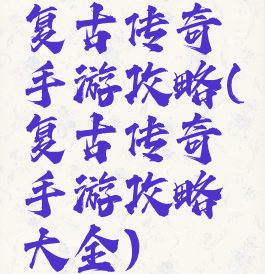 复古传奇
手游攻略(
复古传奇
手游攻略
大全)